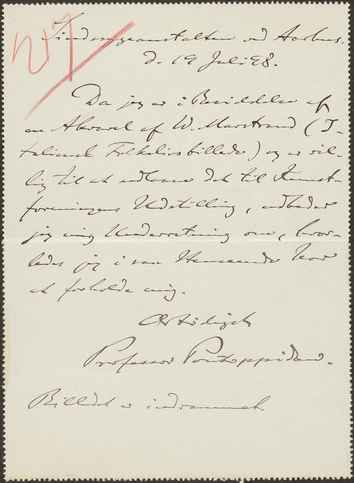 Sindssygeanstalten ved Aarhus,
d. 19 Juli 98.
Da jeg er i Besiddelse af
en Akvarel af W. Marstrand (I-
taliensk Folkelivsbillede) og er vil-
lig til at udlaane det til Kunst-
foreningens Udstilling, udbeder
jeg mig Underretning om, hvor-
ledes jeg i saa Henseende har
at forholde mig.
Ærbødigst
Professor Pontoppidan.
Billedet er indrammet.